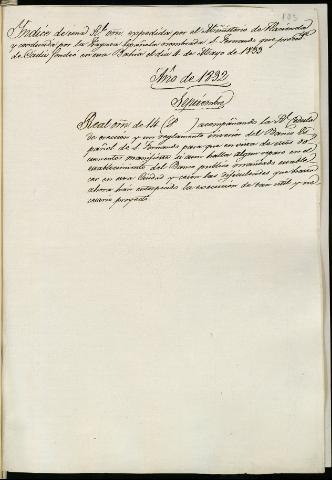 103
Indice de una Rl. orn. expedida por el Ministerio de Hacienda
y conducida por la Fragata Española nombrada S. Fernando que procedte
de Cadiz fondeó en esta Bahia el dia 4 de Mayo de 1833
Año de 1832
Septiembre
Real orn de 14 acompañando la Rl. Cedula
de ereccion y un reglamento interior del Banco Es
pañol de S. Fernando para que en vista de estos do
cumentos manifieste si aun hallan algun reparo en el
establecimiento del Banco publico mandado estable
cer en esta Ciudad y cuales las dificultades que hasta
ahora han entorpecido la execucion de tan util y ne
cesario proyecto